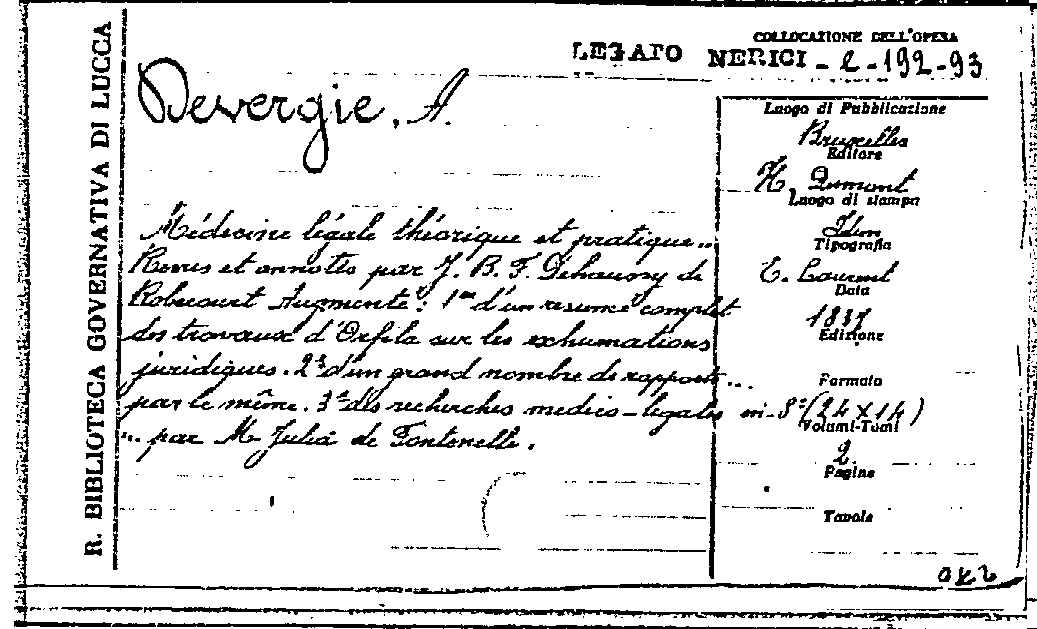 R. BIBLIOTECA GOVERNATIVA DI LUCCA
COLLOCAZIONE DELL'OPERA
LEGATO NERICI - e - 192 - 93
Devergie, A.
Médecine légale théorique et pratique...
Revus et annotés par J. B. F. Dehaussy de
Robecourt Augmenté: 1° d'un resumé complet
des travaux d'Orfila sur les exhumations
juridiques. 2° d'un grand nombre de rapports...
par le même. 3° des recherches medico-légales
... par M. Julia de Fontenelle.
Luogo di Pubblicazione
Bruxelles
Editore
H. Dumont
Luogo di stampa
Idem
Tipografia
E. Laurent
Data
1837
Edizione
Formato
in-8° (24 x 14)
Volumi-Tomi
2
Pagine
Tavole